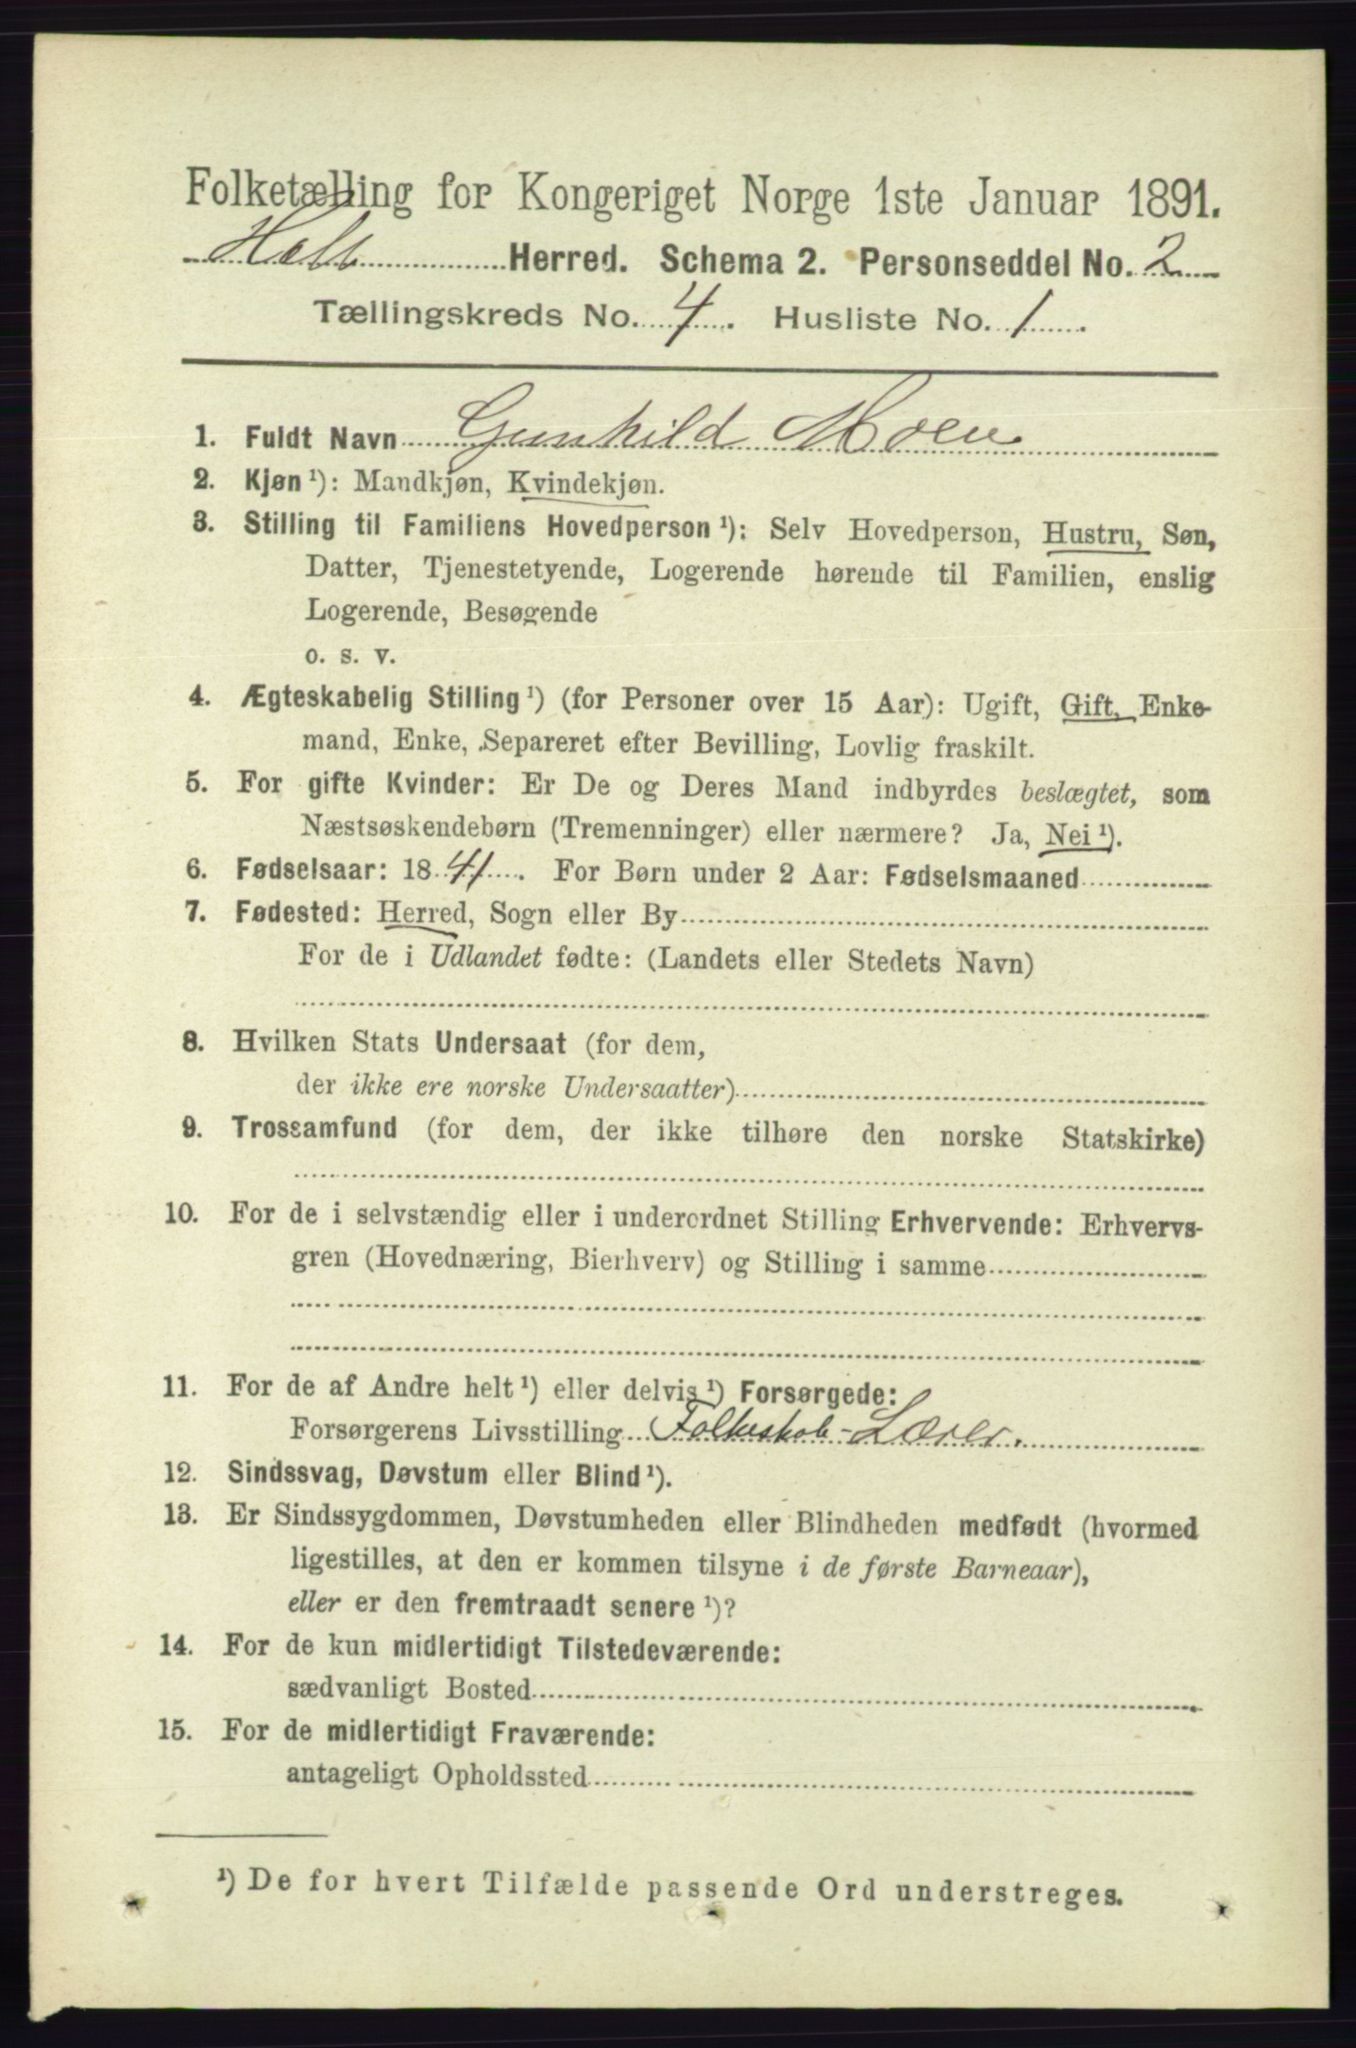 Folketælling for Kongeriget Norge 1ste Januar 1891.
Holt Herred. Schema 2. Personseddel No. 2
Tællingskreds No. 4. Husliste No. 1.
1. Fuldt Navn Gunhild Moen
2. Kjøn ¹): Mandkjøn, Kvindekjøn.
3. Stilling til Familiens Hovedperson ¹): Selv Hovedperson, Hustru, Søn,
Datter, Tjenestetyende, Logerende hørende til Familien, enslig
Logerende, Besøgende
o. s. v.
4. Ægteskabelig Stilling ¹) (for Personer over 15 Aar): Ugift, Gift, Enke-
mand, Enke, Separeret efter Bevilling, Lovlig fraskilt.
5. For gifte Kvinder: Er De og Deres Mand indbyrdes beslægtet, som
Næstsøskendebørn (Tremenninger) eller nærmere? Ja, Nei ¹).
6. Fødselsaar: 1841. For Børn under 2 Aar: Fødselsmaaned
7. Fødested: Herred, Sogn eller By
For de i Udlandet fødte: (Landets eller Stedets Navn)
8. Hvilken Stats Undersaat (for dem,
der ikke ere norske Undersaatter)
9. Trossamfund (for dem, der ikke tilhøre den norske Statskirke)
10. For de i selvstændig eller i underordnet Stilling Erhvervende: Erhvervs-
gren (Hovednæring, Bierhverv) og Stilling i samme
11. For de af Andre helt ¹) eller delvis ¹) Forsørgede:
Forsørgerens Livsstilling Folkeskole-Lærer.
12. Sindssvag, Døvstum eller Blind ¹).
13. Er Sindssygdommen, Døvstumheden eller Blindheden medfødt (hvormed
ligestilles, at den er kommen tilsyne i de første Barneaar),
eller er den fremtraadt senere ¹)?
14. For de kun midlertidigt Tilstedeværende:
sædvanligt Bosted
15. For de midlertidigt Fraværende:
antageligt Opholdssted
¹) De for hvert Tilfælde passende Ord understreges.